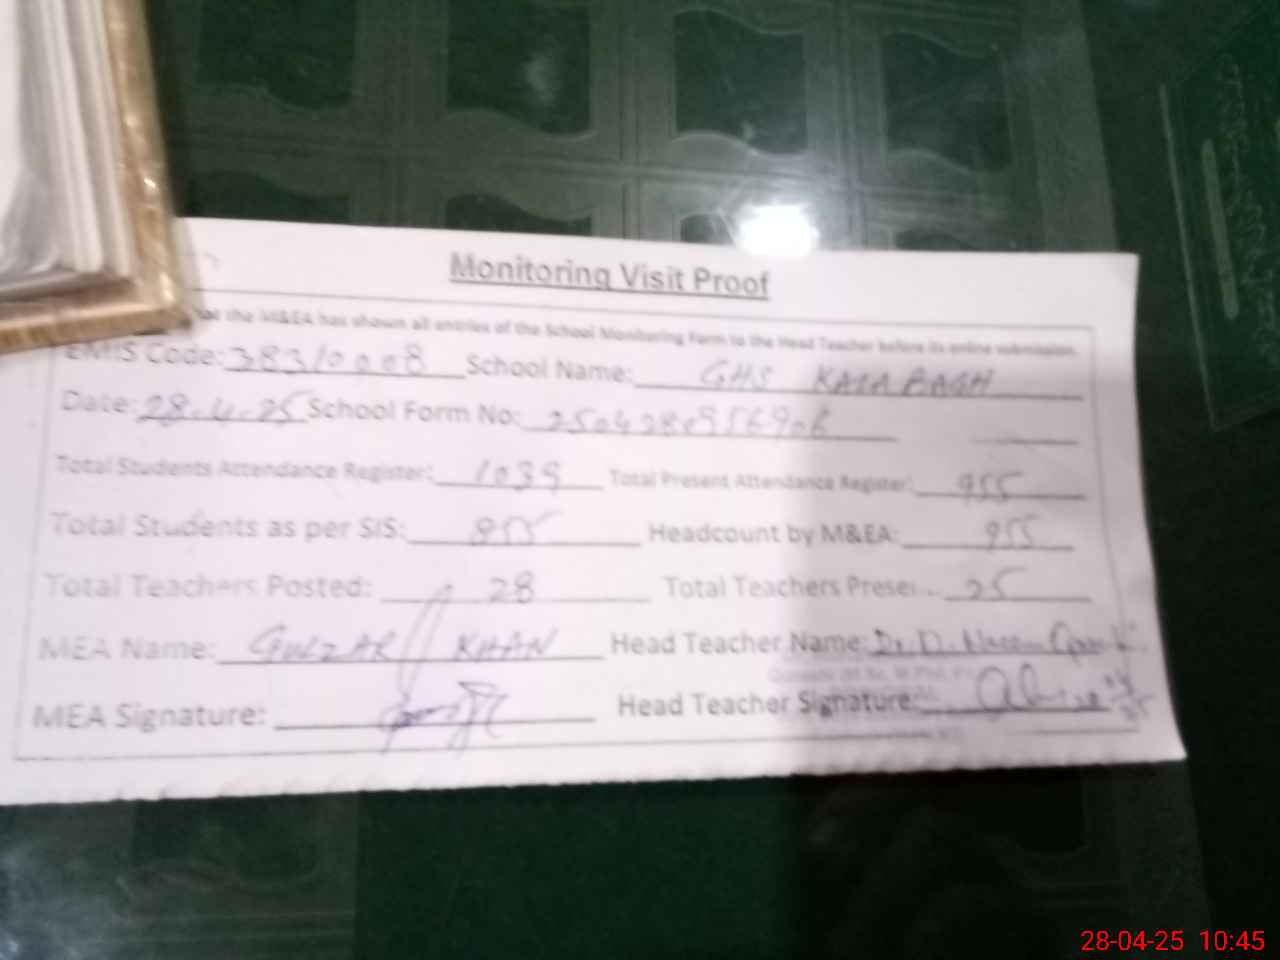 Monitoring Visit Proof
the M&EA has shown all entries of the School Monitoring Form to the Head Teacher before its online submission.
EMIS Code: 38310008 School Name: GHS KALA BAGH
Date: 28.4.25 School Form No: 2504280956906
Total Students Attendance Register: 1039 Total Present Attendance Register: 955
Total Students as per SIS: 855 Headcount by M&EA: 955
Total Teachers Posted: 28 Total Teachers Prese 25
MEA Name: GULZAR KHAN Head Teacher Name: Dr. D.
MEA Signature: Head Teacher Signature:
28-04-25 10:45